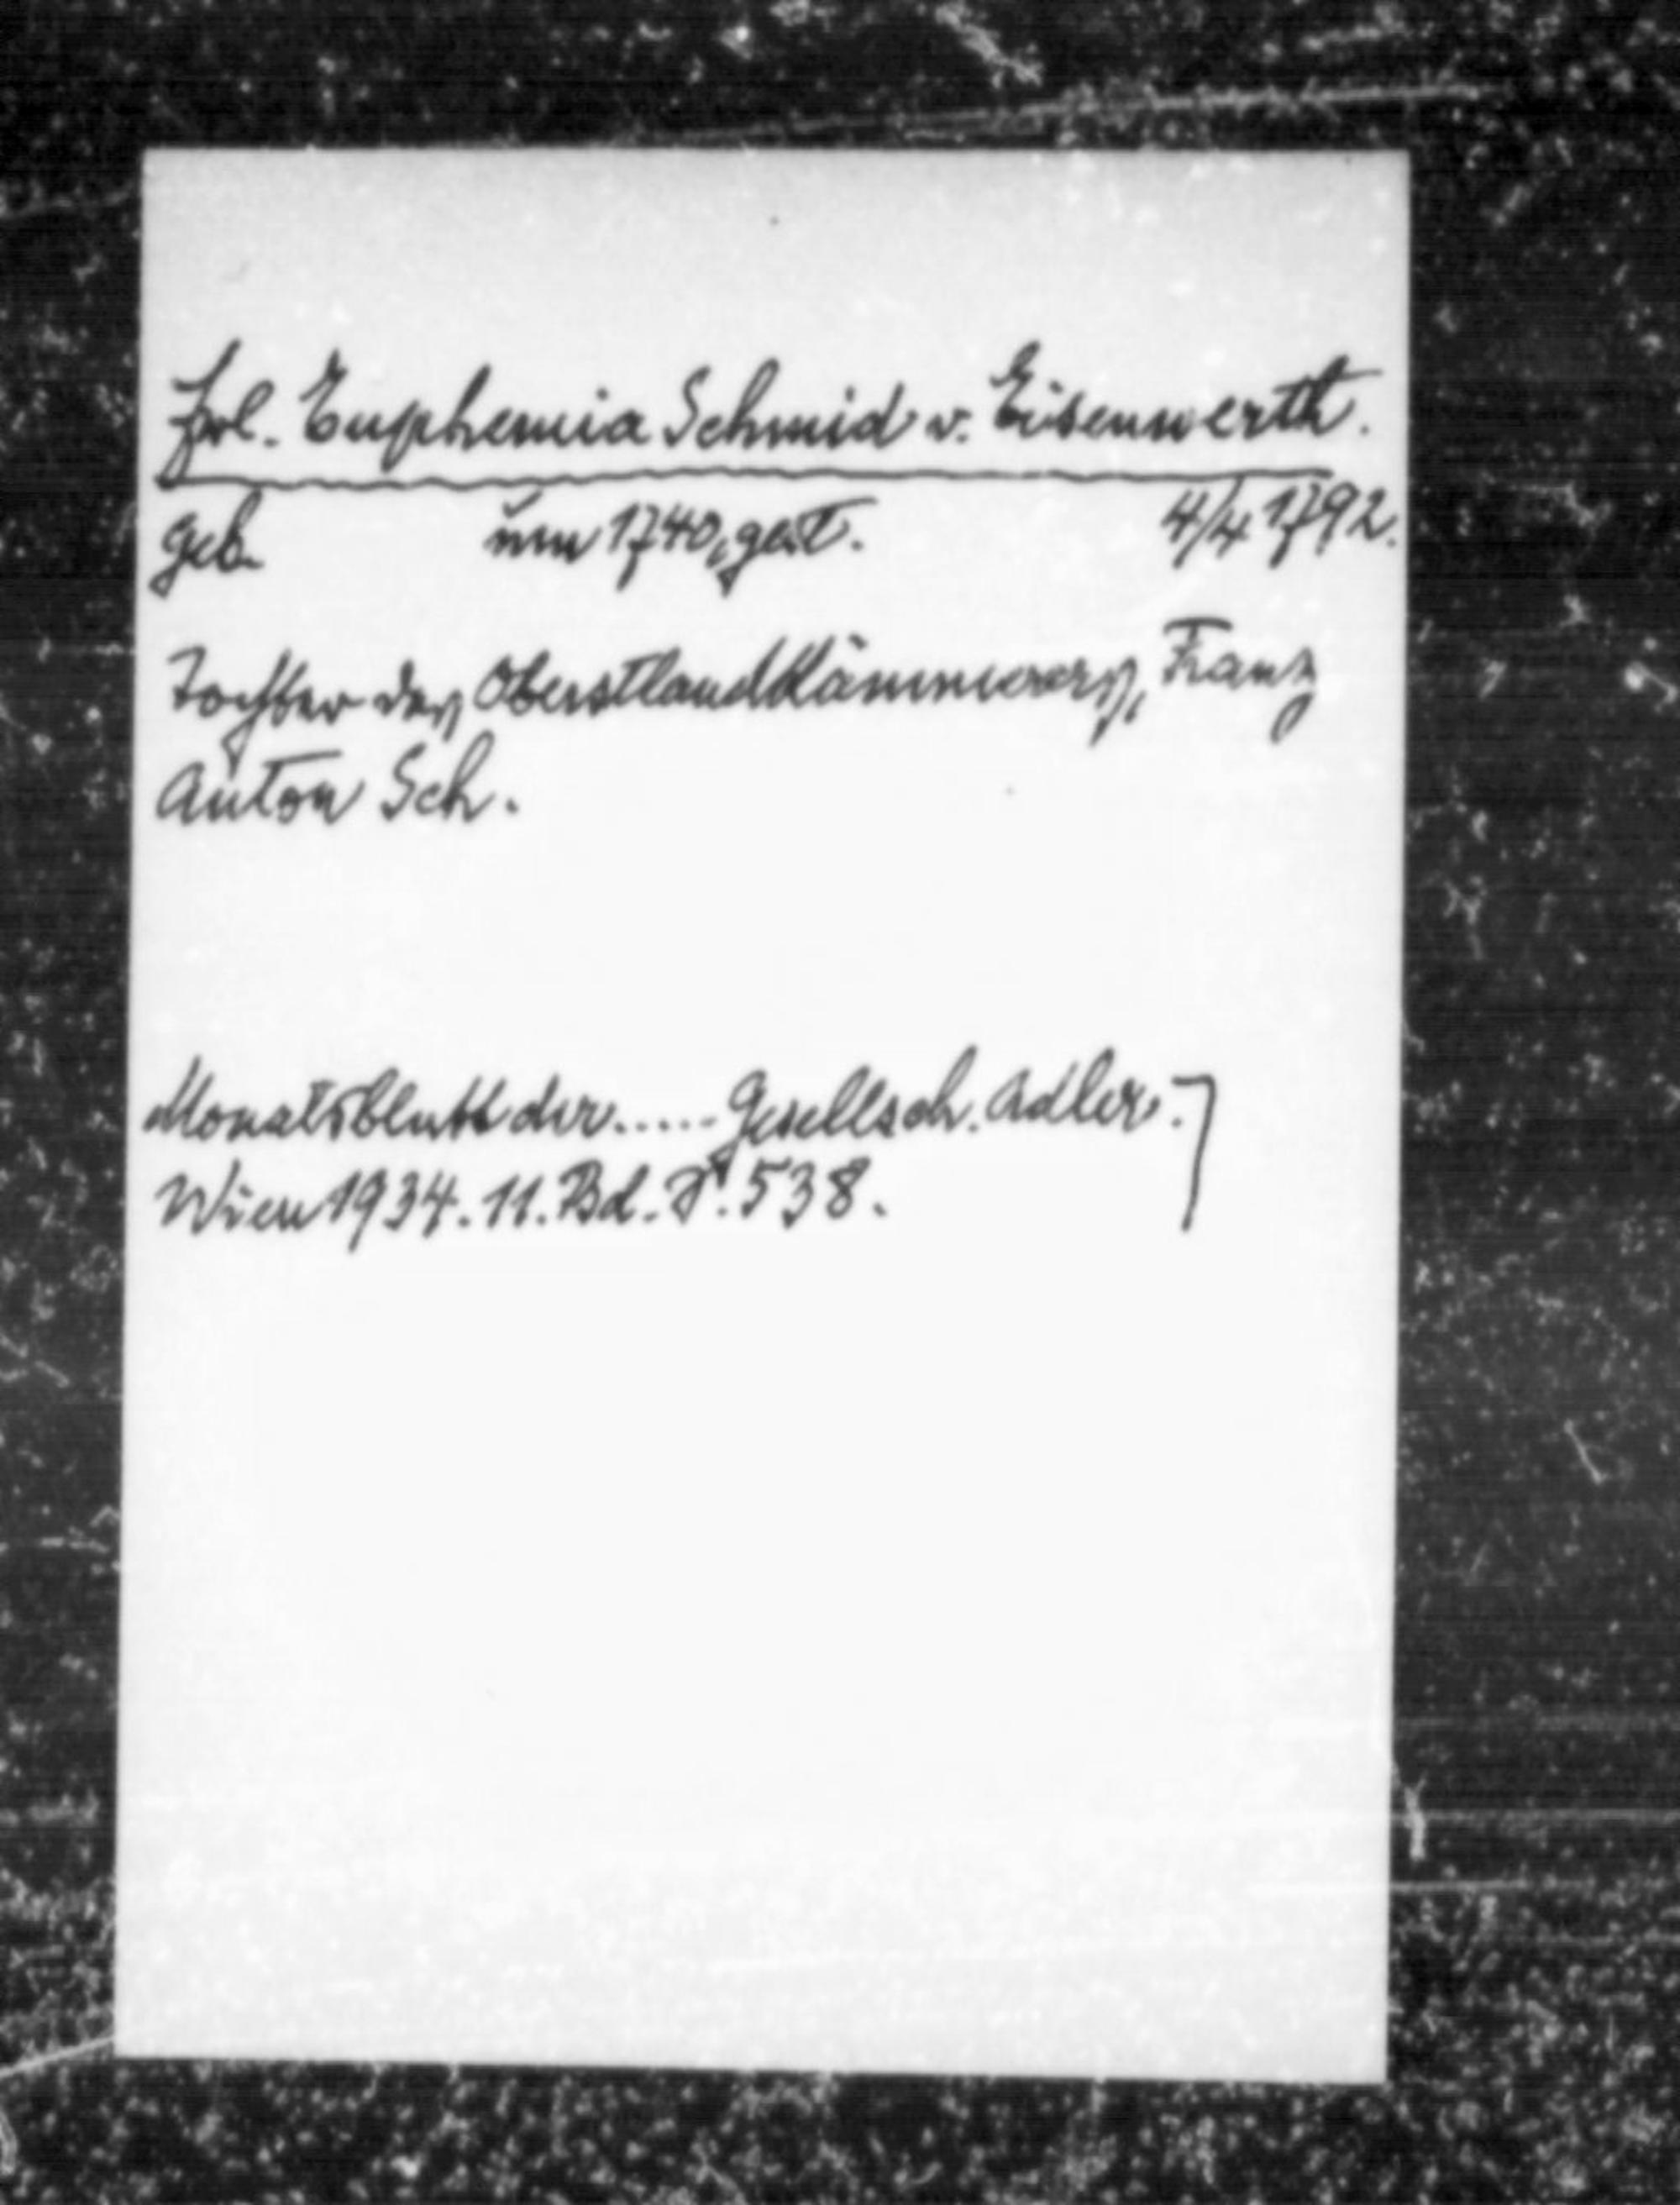 Frl. Euphemia Schmid v. Eisenwerth.
geb. um 1740, gest. 4/4 1792.
Tochter des Oberstlandkämmerers, Franz
Anton Sch.
Monatsblatt der ..... Gesellsch. Adler.]
Wien 1934. 11. Bd. S. 538.